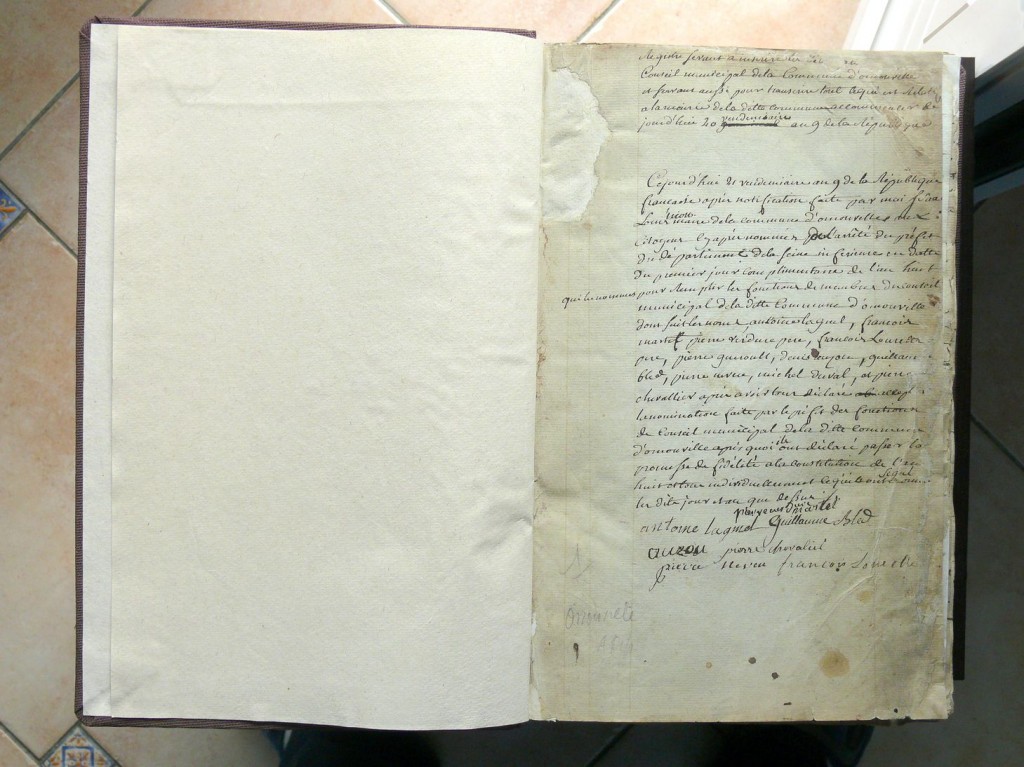 Registre servant a inscrire les
Conseil municipal dela Commune d'omonville
et servant aussi pour transcrire tout ce qui est relatif
a la mairie dela ditte commune a commencer de
jourd'huie 20 vendemiaire an 9 de la République
Cejourd'hui 21 vendemiaire an 9 de la République
francaise après notification faite par moi
maire dela commune d'omonville aux
citoyens cy après nommés de l'arrêté du préfet
du département dela seine inferieure en datte
du premier jour complimentaire de l'an huit
qui les nommes pour remplir les fonctions de membres du conseil
municipal dela ditte Commune d'omonville
dont suit les noms antoine laquel, francois
martel pierre verdure pere, francois Lourdel
pere, pierre gueroult, denis, guillaume
bled, pierre neveu, michel duval, et pierre
chevallier après avoir tous déclaré
la nomination faite par le préfet des fonctions
de Conseil municipal dela ditte Commune
d'omonville après quoi ils ont déclaré passer la
promesse de fidélité a la constitution de l'an
huit et tous individuellement ce qu'ils ont signé
les dits jour et an que dessus
martel
antoine laquel Guillaume Bled
auzou pierre chevalier
pierre neveu francois
1
omonville